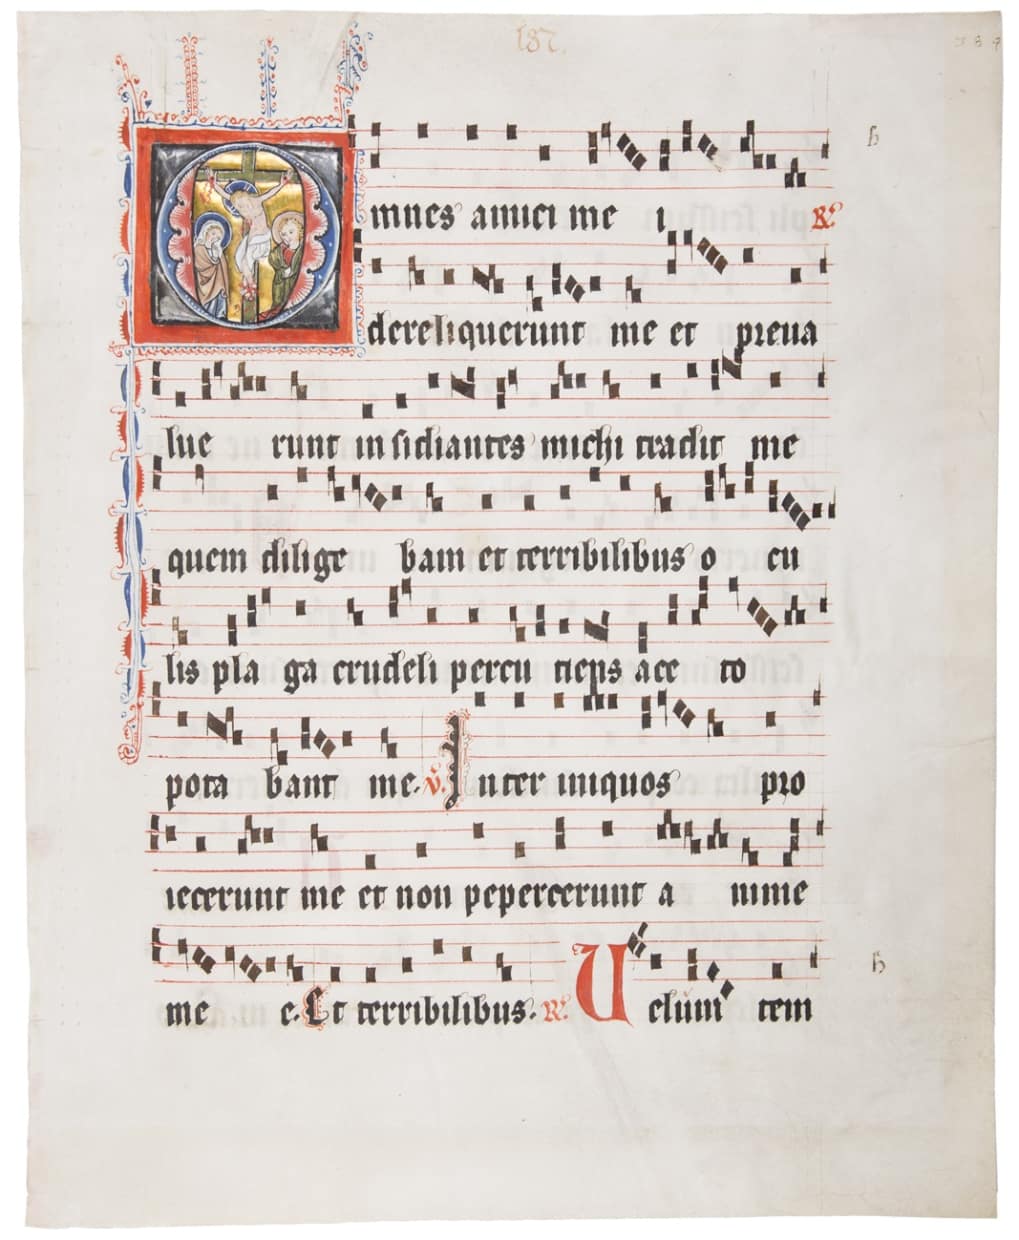 187.
189
h
Omnes amici me i R.
dereliquerunt me et preua
lue runt insidiantes michi tradit me
quem dilige bam et terribilibus o cu
lis pla ga crudeli percu tiens ace to
pota bant me. V. Inter iniquos pro
iecerunt me et non pepercerunt a nime
h
me e. Et terribilibus. R. Uelum tem